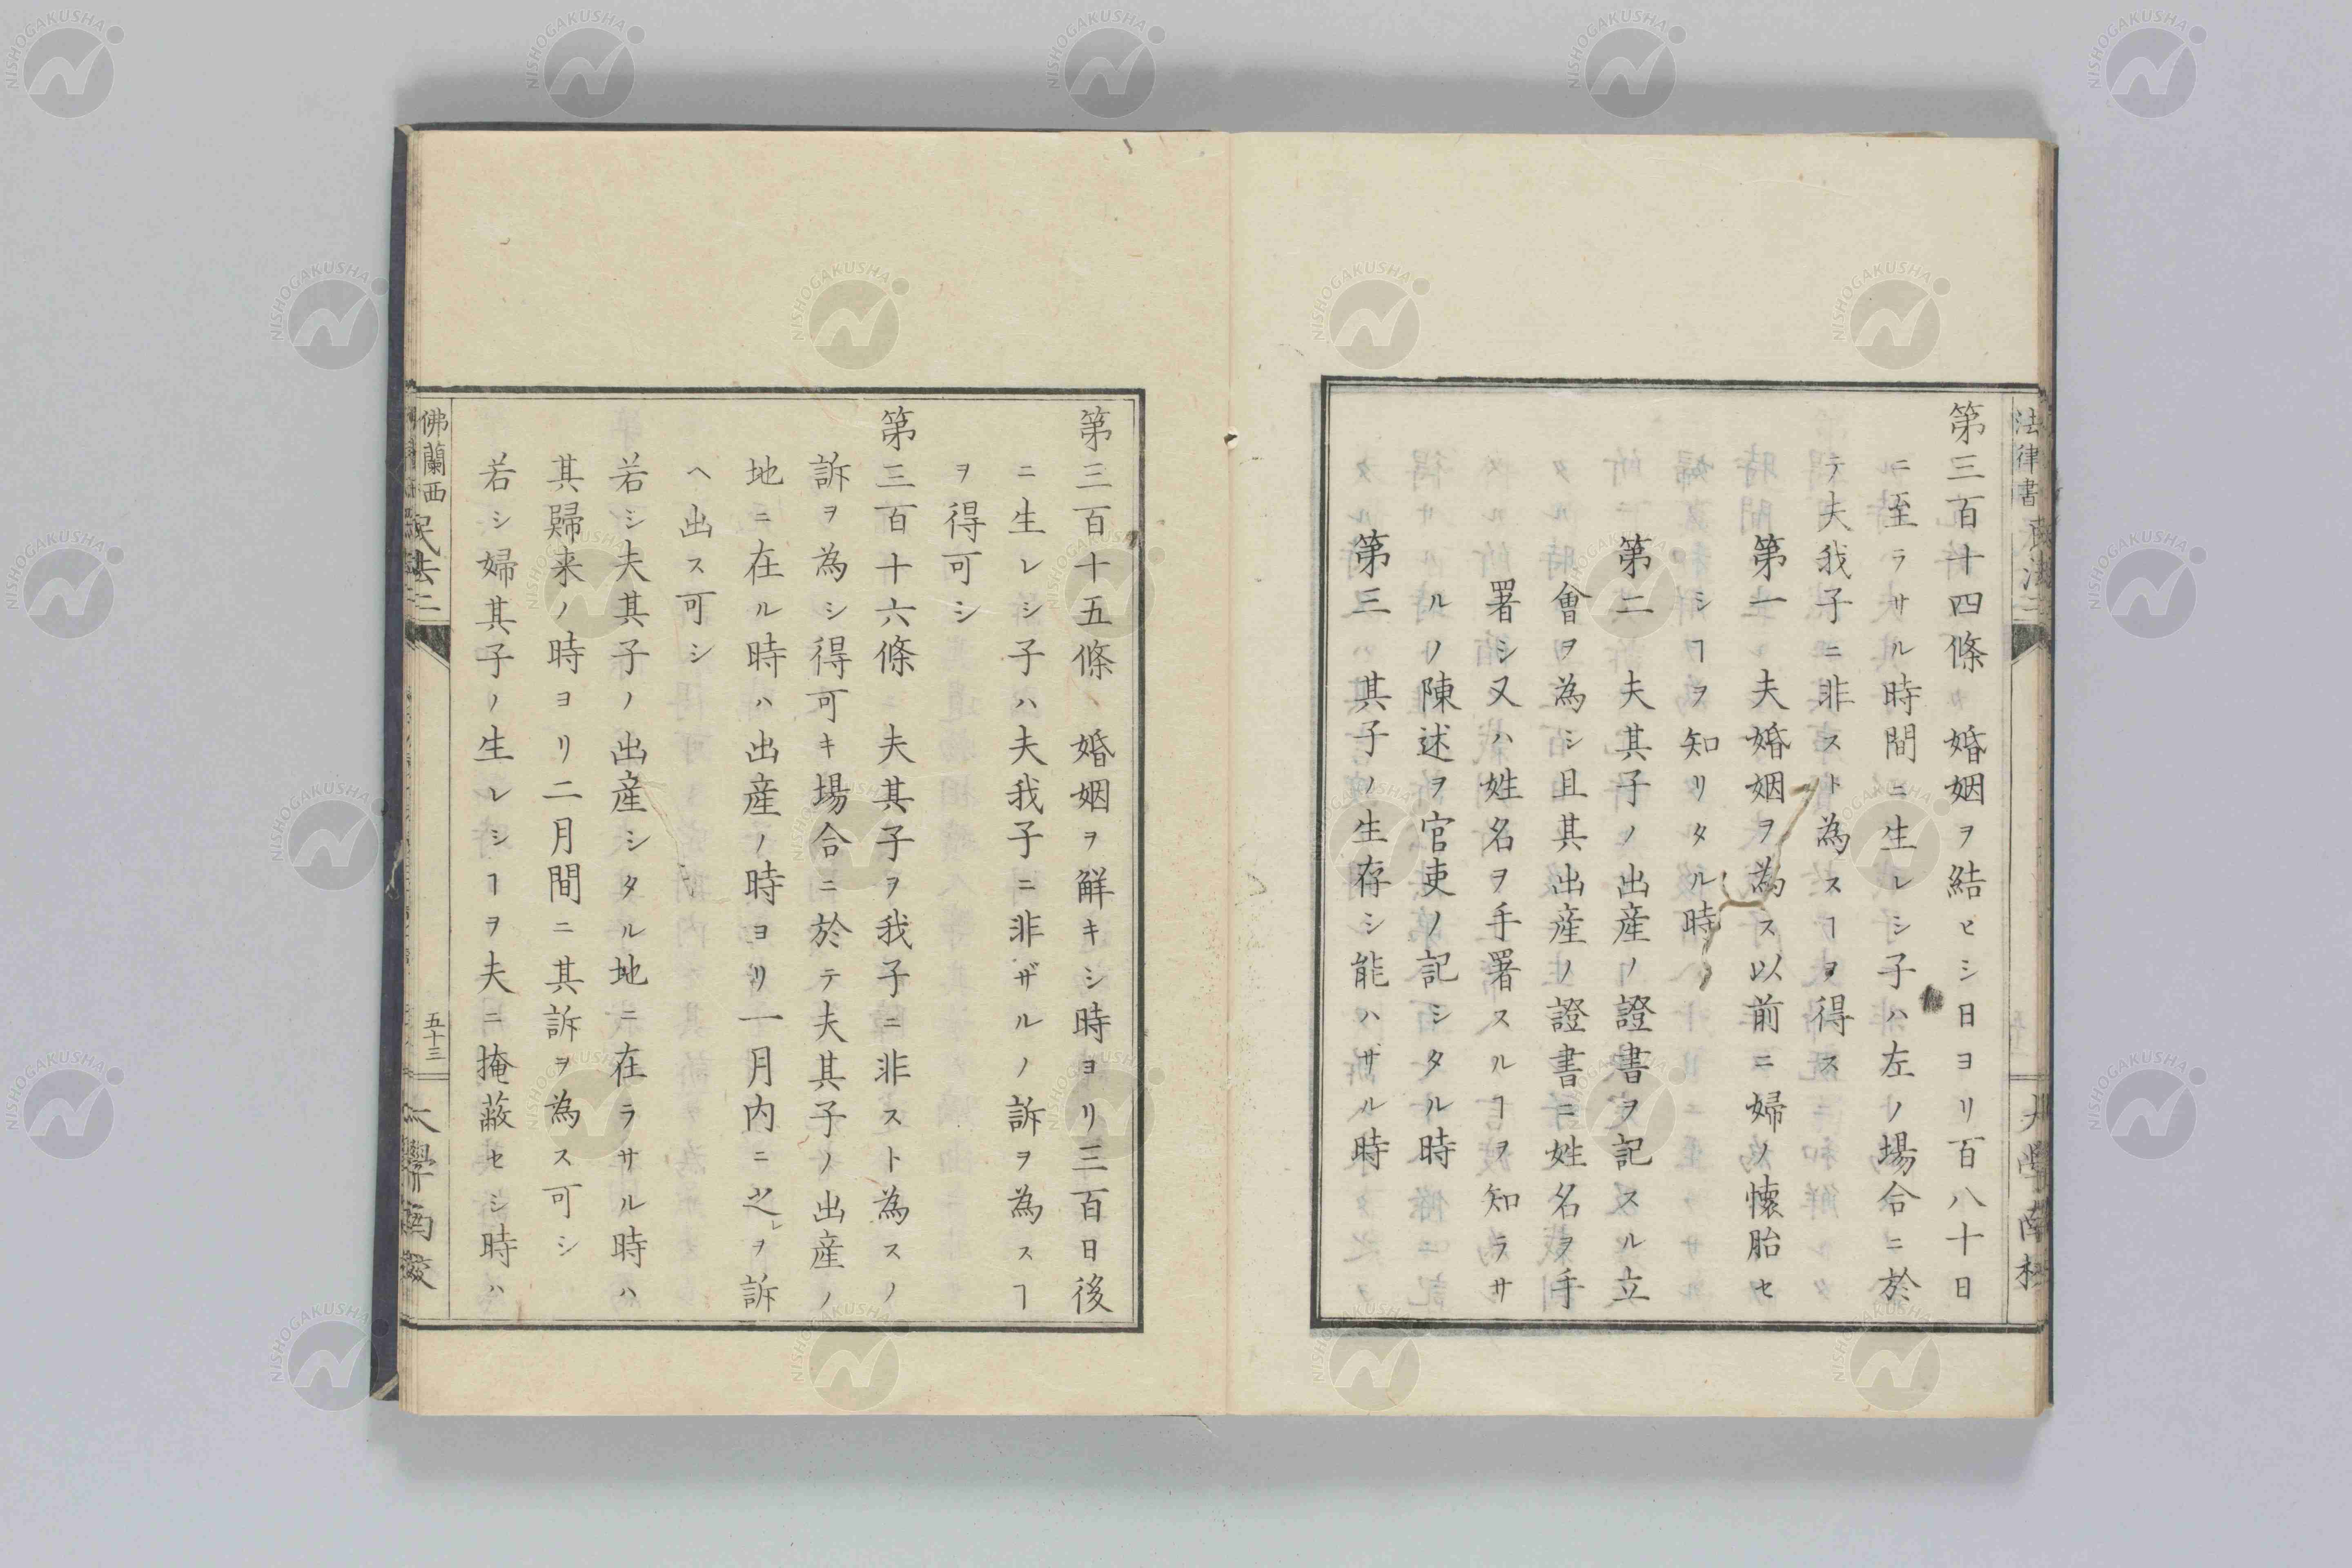 法律書
第三百十四條 婚姻ヲ結ヒシ日ヨリ百八十日
ニ至ラサル時間ニ生レシ子ハ左ノ場合ニ於
テ夫我子ニ非スト為スヿヲ得ス
第一 夫婚姻ヲ為ス以前ニ婦ノ懐胎セ
シヿヲ知リタル時
第二 夫其子ノ出産ノ證書ヲ記スル立
會ヲ為シ且其出産ノ證書ニ姓名ヲ手
署シ又ハ姓名ヲ手署スルヿヲ知ラサ
ルノ陳述ヲ官吏ノ記シタル時
第三 其子ノ生存シ能ハサル時
第三百十五條 婚姻ヲ觧キシ時ヨリ三百日後
ニ生レシ子ハ夫我子ニ非ザルノ訴ヲ為スヿ
ヲ得可シ
第三百十六條 夫其子ヲ我子ニ非スト為スノ
訴ヲ為シ得可キ場合ニ於テ夫其子ノ出産ノ
地ニ在ル時ハ出産ノ時ヨリ一月内ニ之レヲ訴
ヘ出ス可シ
若シ夫其子ノ出産シタル地ニ在ラサル時ハ
其歸来ノ時ヨリ二月間ニ其訴ヲ為ス可シ
若シ婦其子ノ生レシヿヲ夫ニ掩蔽セシ時ハ
佛蘭西民法二 五十三
NISHOGAKUSHA